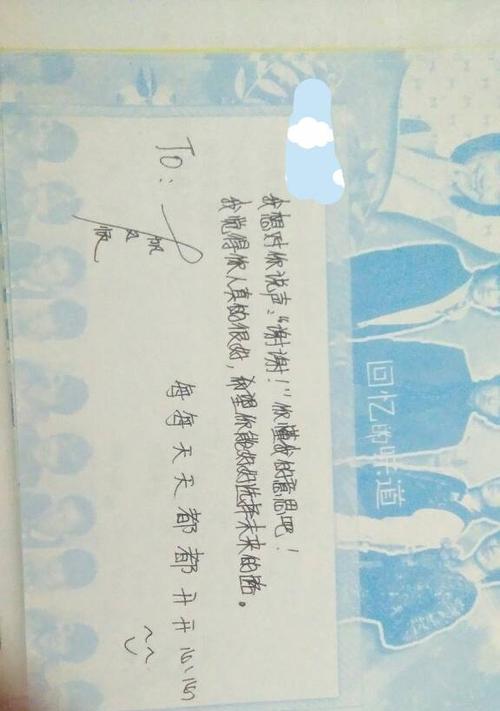 回忆的味道
我想对你说声:“谢谢!”你懂我的意思吧!
我觉得你人真的很好,希望你能好好选择未来的路。
To:
每每天天都都开开心心